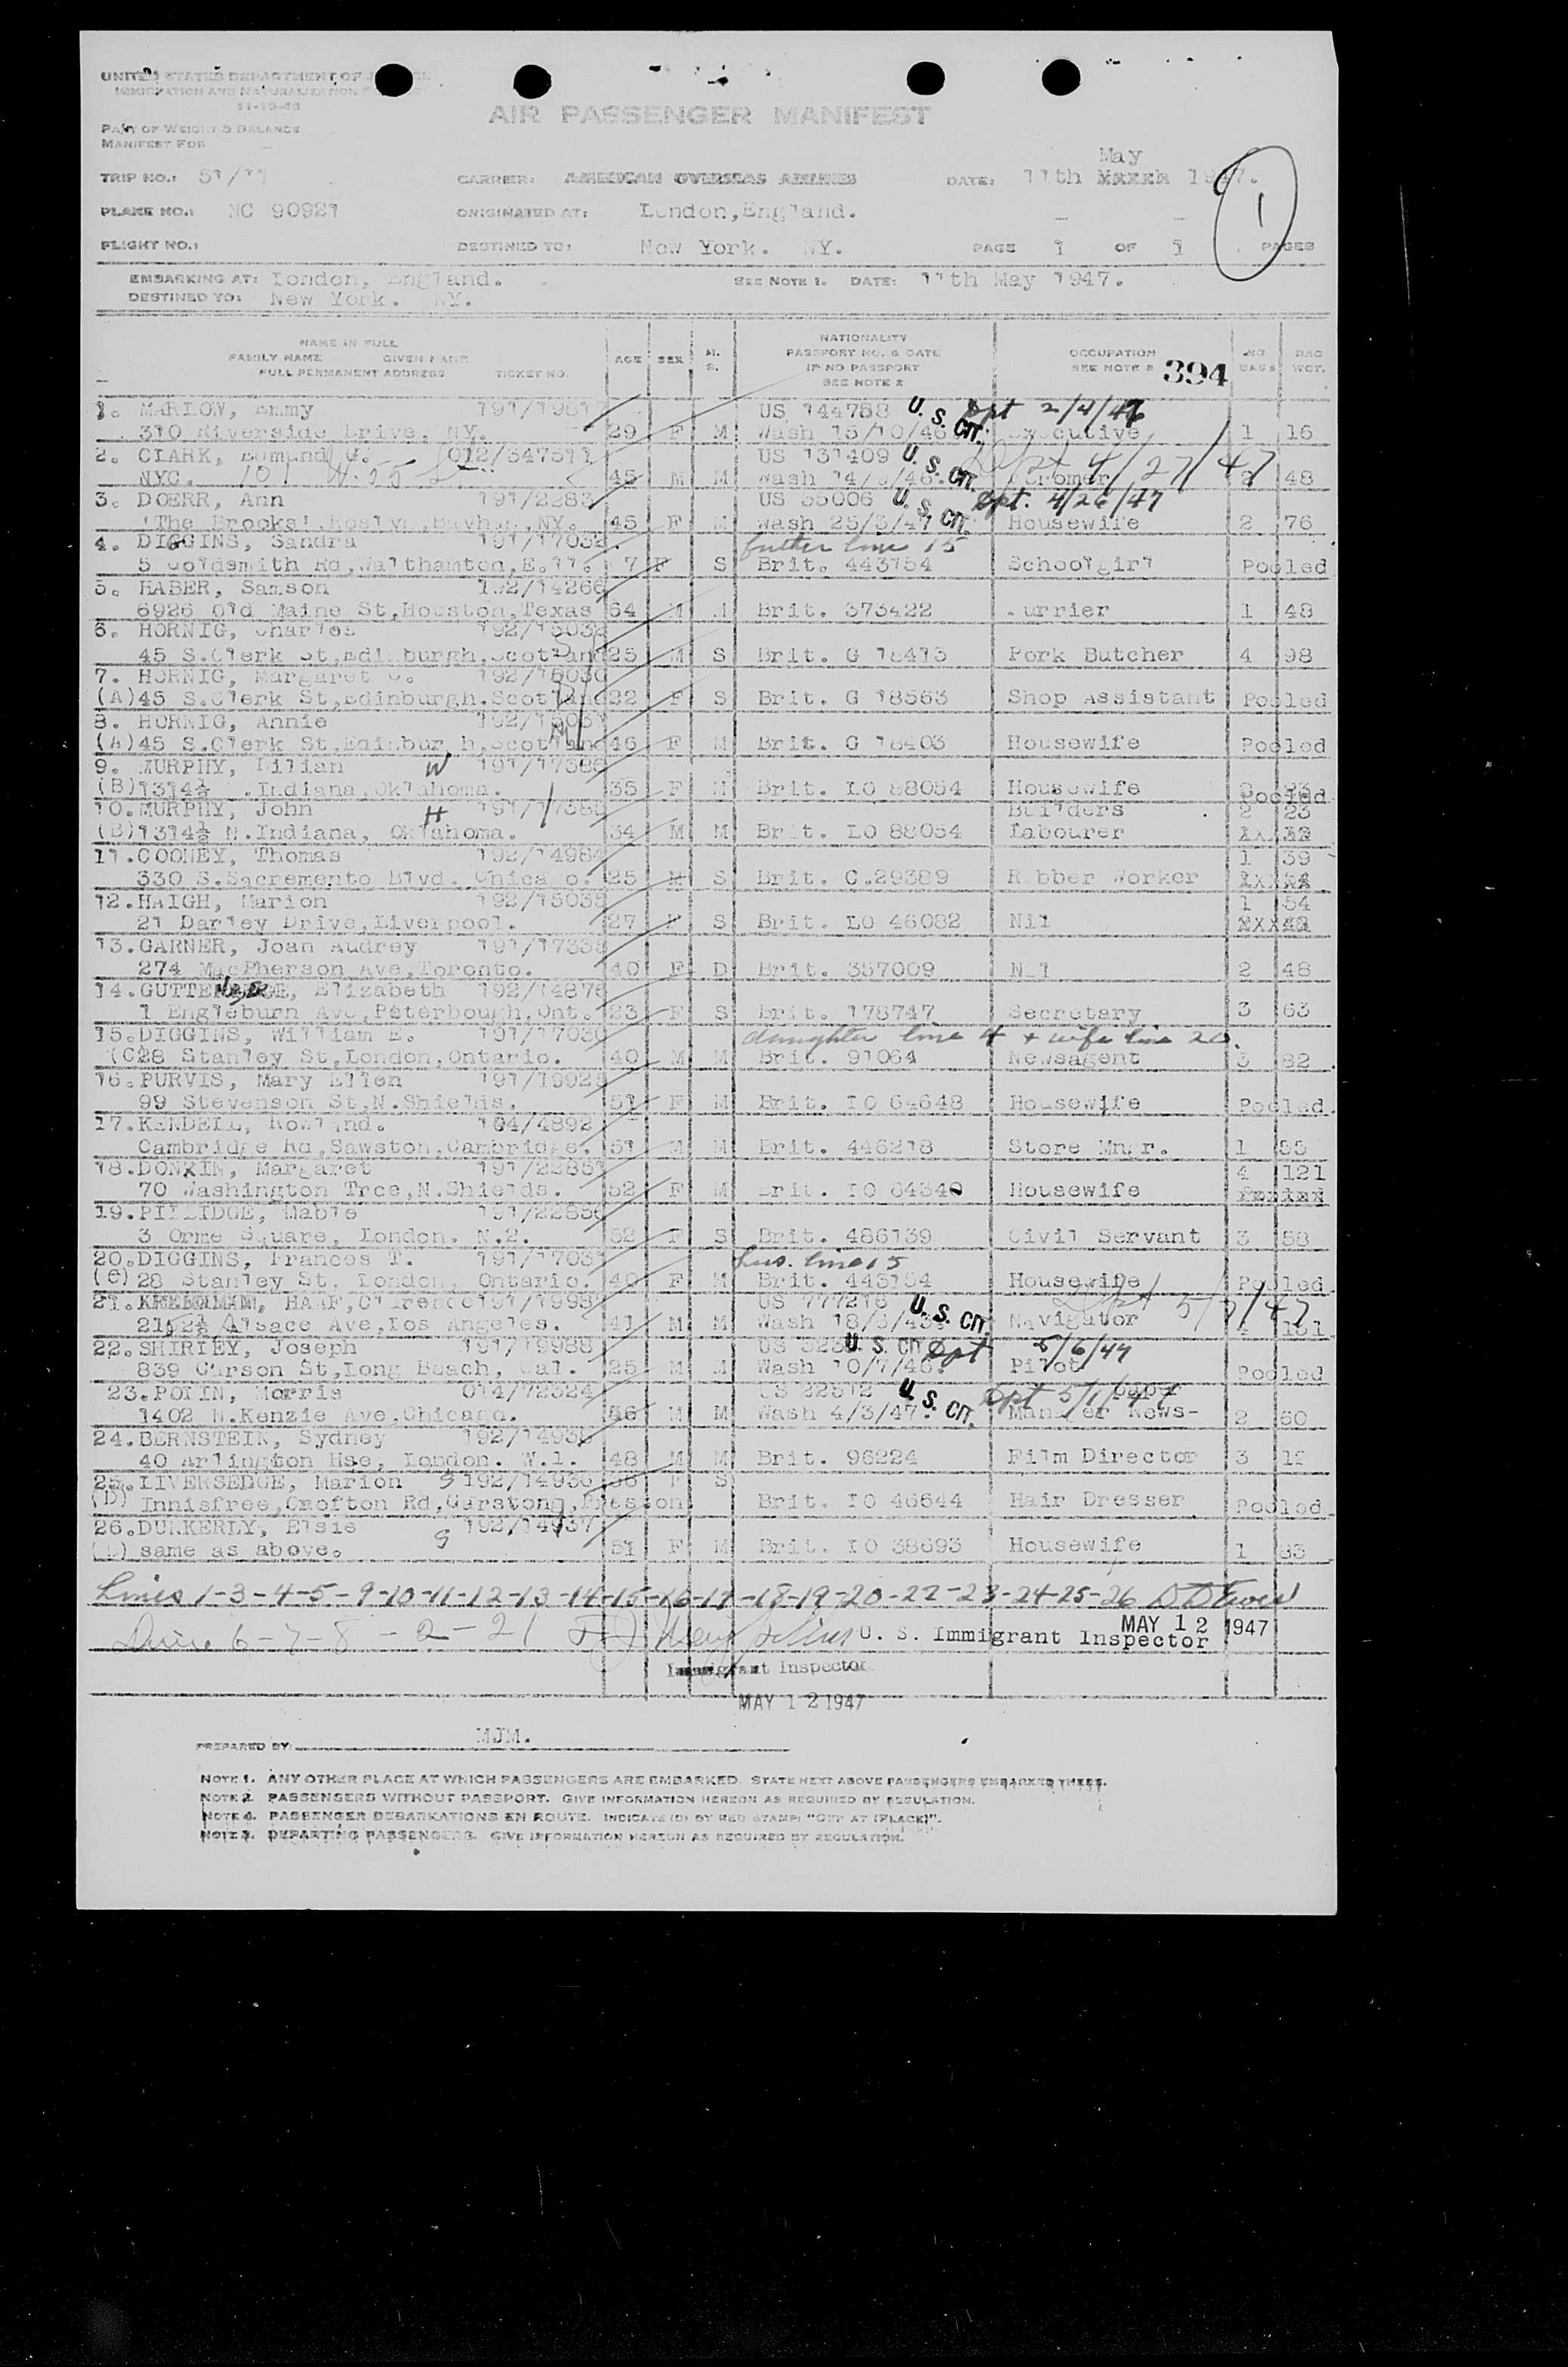 UNITED STATES DEPARTMENT OF
IMMIGRATION AND NATURALIZATION
11-10-46
PART OF WEIGHT & BALANCE
MANIFEST FOR
AIR PASSENGER MANIFEST
May
TRIP NO.: 51/11 CARRIER: AMERICAN OVERSEAS AIRLINES DATE: 11th 1947.
PLANE NO.: NC 90921 ORIGINATED AT: London, England.
1
FLIGHT NO.: DESTINED TO: New York. NY. PAGE 1 OF 1 PAGES
EMBARKING AT: London, England. SEE NOTE 1. DATE: 11th May 1947.
DESTINED TO: New York. NY.
NAME IN FULL
FAMILY NAME GIVEN NAME
FULL PERMANENT ADDRESS TICKET NO.
AGE SEX M. S.
NATIONALITY
PASSPORT NO. & DATE
IF NO PASSPORT
SEE NOTE 2
OCCUPATION
SEE NOTE 3 394
NO BAGS BAG WGT.
1. MARLOW, Emmy US 144758 U. S. CIT. Dpt 2/4/47
310 Riverside Drive, NY. 29 F M Wash 15/10/46 Executive 1 16
2. CLARK, Edmund G. 012/347511 US 131409 U. S. CIT. Dpt 4/27/47
NYC. 101 W. 55 St 45 M M Wash 48
3. DOERR, Ann 191/2283 US 55006 U. S. CIT. Dpt. 4/26/47
'The Brooks', Roslyn, NY. 45 F M Wash 25/3/47 Housewife 2 76
4. DIGGINS, Sandra 191/17032 father line 15
5 Goldsmith Rd, Walthamton, E.11. 7 F S Brit. 443154 Schoolgirl Pooled
5. HABER, Samson 192/14266
6926 Old Maine St, Houston, Texas 64 M M Brit. 373422 Furrier 1 48
6. HORNIG, Charles 192/15032
45 S. Clerk St, Edinburgh, Scotland 25 M S Brit. G 18413 Pork Butcher 4 98
7. HORNIG, Margaret 192/15030
(A) 45 S. Clerk St, Edinburgh. Scotland 22 F S Brit. G 18563 Shop Assistant Pooled
8. HORNIG, Annie 192/15031
(A) 45 S. Clerk St, Edinburgh, Scotland 46 F M Brit. G 18403 Housewife Pooled
9. MURPHY, Lilian W 191/17386
(B) 1314½ . Indiana, Oklahoma. 35 F M Brit. LO 88054 Housewife Pooled
10. MURPHY, John H 191/17385 Builders 2 23
(B) 1314½ N. Indiana, Oklahoma. 34 M M Brit. LO 88054 Labourer
11. COONEY, Thomas 192/14984 1 39
330 S. Sacremento Blvd. Chicago. 25 M S Brit. C.29389 Rubber Worker
12. HAIGH, Marion 192/15035 1 54
21 Darley Drive, Liverpool. 27 F S Brit. LO 46082 Nil
13. GARNER, Joan Audrey 191/17358
274 MacPherson Ave, Toronto. 40 F D Brit. 357009 Nil 2 48
14. Elizabeth 192/14876
1 Engleburn Ave, Peterbough, Ont. 23 F S Brit. 178747 Secretary 3 63
15. DIGGINS, William E. 191/17030 daughter line 4 + wife line 20.
(C) 28 Stanley St, London, Ontario. 40 M M Brit. 91064 Newsagent 3 82
16. PURVIS, Mary Ellen 191/19928
99 Stevenson St, N. Shields. 51 F M Brit. LO 64648 Housewife Pooled.
17. KENDELL, Rowland. 164/4892
Cambridge Rd, Sawston, Cambridge. 51 M M Brit. 446218 Store Mngr. 1 35
18. DONKIN, Margaret 191/22851 4 121
70 Washington Trce, N. Shields. 52 F M Brit. LO 64340 Housewife
19. PILLIDGE, Mable 191/22856
3 Orme Square, London. N.2. 52 F S Brit. 486139 Civil Servant 3 58
20. DIGGINS, Frances T. 191/17031 hus. line 15
(C) 28 Stanley St, London, Ontario. 40 F M Brit. 443154 Housewife Pooled
21. HAAF, Clarence 191/1998 US 777216 U. S. CIT. Dpt 5/7/47
Alsace Ave, Los Angeles. 41 M M Wash 18/5/43 Navigator 4 151
22. SHIRLEY, Joseph 191/19988 U. S. CIT Dpt 5/6/47
839 Carson St, Long Beach, Cal. 25 M M Wash 10/7/46. Pilot Pooled
23. POLIN, Morris 014/72324 US 22512 U. S. CIT. Dpt 5/1/47 paper
1402 N. Kenzie Ave, Chicago. 46 M M Wash 4/3/47. Manager News- 2 60
24. BERNSTEIN, Sydney 192/14935
40 Arlington Hse, London. W.1. 48 M M Brit. 96224 Film Director 3 12
25. LIVERSEDGE, Marion S 192/14936 36 F S
(D) Innisfree, Crofton Rd, Garstong, Preston Brit. LO 46644 Hair Dresser Pooled.
26. DUNKERLY, Elsie S 192/14937
(D) same as above. 51 F M Brit. LO 38693 Housewife 1 83
Lines 1-3-4-5-9-10-11-12-13-14-15-16-17-18-19-20-22-23-24-25-26
Lines 6-7-8-2-21 U. S. Immigrant Inspector MAY 12 1947
Immigrant Inspector
MAY 12 1947
PREPARED BY: MJM.
NOTE 1. ANY OTHER PLACE AT WHICH PASSENGERS ARE EMBARKED. STATE NEXT ABOVE PASSENGERS EMBARKED THERE.
NOTE 2. PASSENGERS WITHOUT PASSPORT. GIVE INFORMATION HEREON AS REQUIRED BY REGULATION.
NOTE 4. PASSENGER DEBARKATIONS EN ROUTE. INDICATE (D) BY RED STAMP: "OFF AT (PLACE)".
NOTE 3. DEPARTING PASSENGERS. GIVE INFORMATION HEREON AS REQUIRED BY REGULATION.